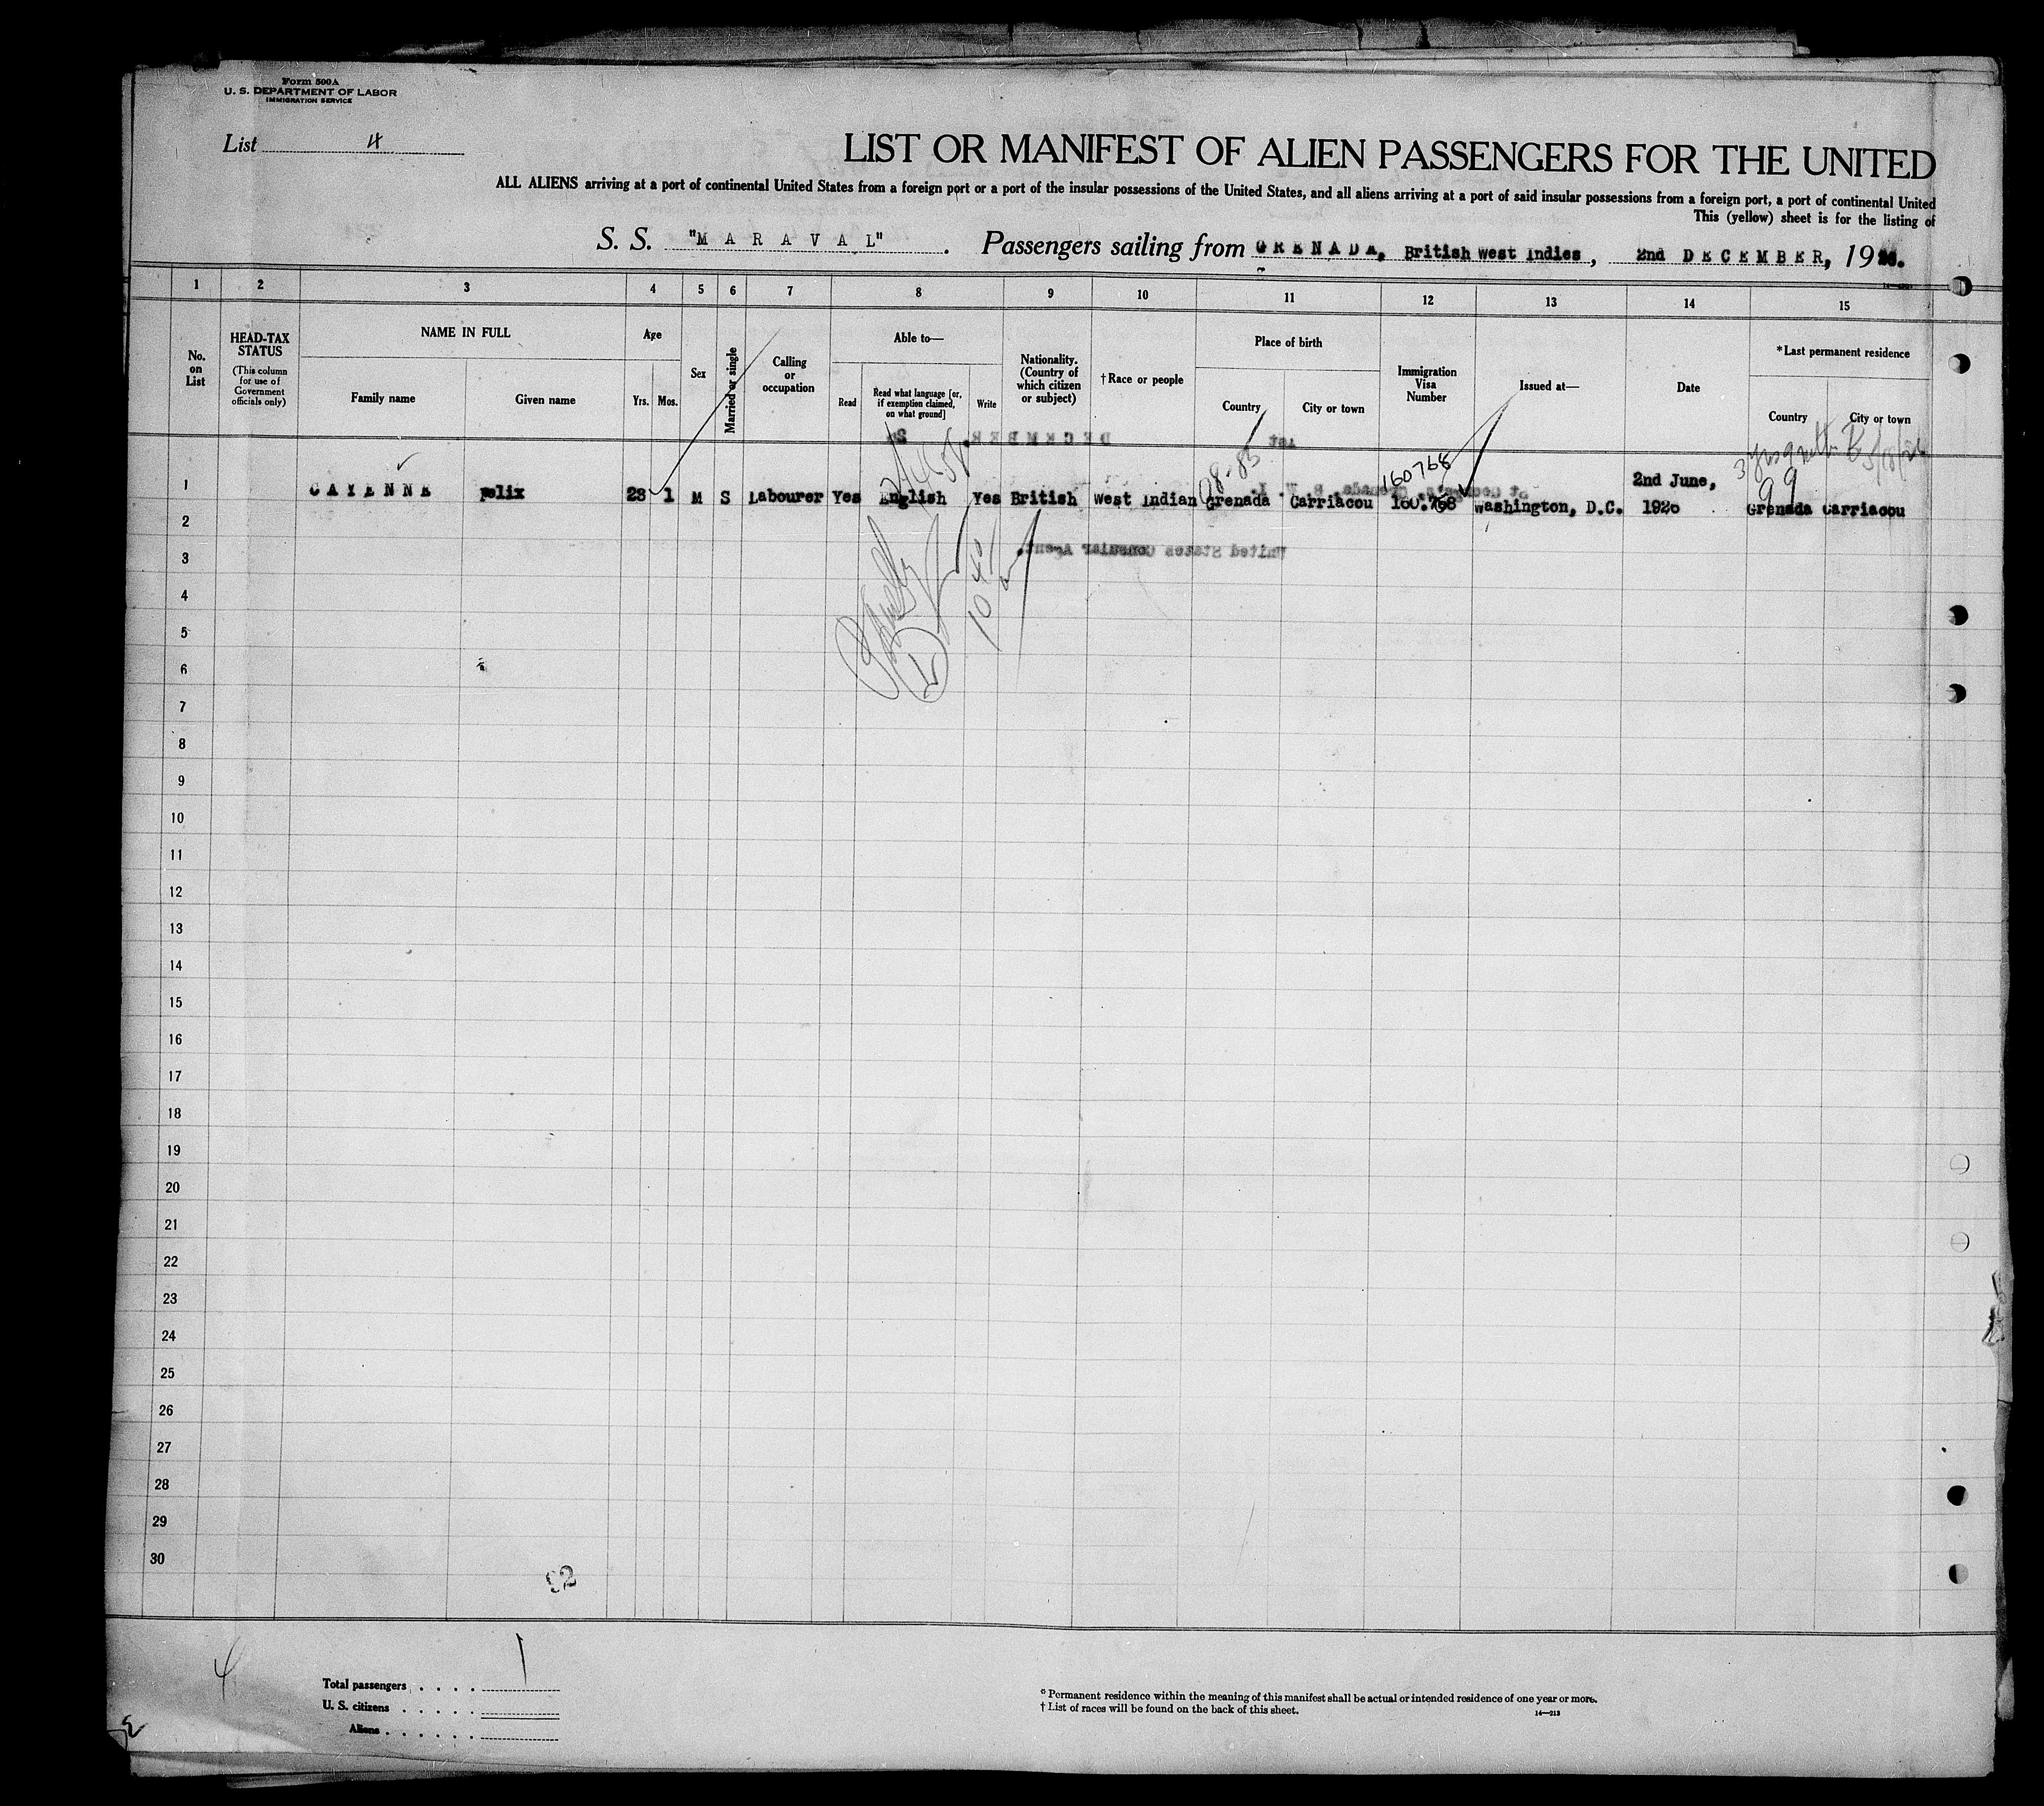 Form 500A
U. S. DEPARTMENT OF LABOR
IMMIGRATION SERVICE
List 4
LIST OR MANIFEST OF ALIEN PASSENGERS FOR THE UNITED
ALL ALIENS arriving at a port of continental United States from a foreign port or a port of the insular possessions of the United States, and all aliens arriving at a port of said insular possessions from a foreign port, a port of continental United
This (yellow) sheet is for the listing of
S. S. "MARAVAL". Passengers sailing from GRENADA, British West Indies, 2nd DECEMBER, 19
1 2 3 4 5 6 7 8 9 10 11 12 13 14 15
No. on List
HEAD-TAX STATUS
(This column for use of Government officials only)
NAME IN FULL
Family name
Given name
Age
Yrs. Mos.
Sex
Married or single
Calling or occupation
Able to—
Read
Read what language [or, if exemption claimed, on what ground]
Write
Nationality. (Country of which citizen or subject)
† Race or people
Place of birth
Country
City or town
Immigration Visa Number
Issued at—
Date
*Last permanent residence
Country
City or town
DECEMBER.
1st
160768
1 CAYENNE Felix 28 1 M S Labourer Yes English Yes British West Indian Grenada Carriacou 160.768 Washington, D.C. 2nd June, 1926 Grenada Carriacou
99
United States Consular Agent.
2
3
4
5
6
7
8
9
10
11
12
13
14
15
16
17
18
19
20
21
22
23
24
25
26
27
28
29
30
92
4
Total passengers 1
U. S. citizens
Aliens
* Permanent residence within the meaning of this manifest shall be actual or intended residence of one year or more.
† List of races will be found on the back of this sheet.
14—213